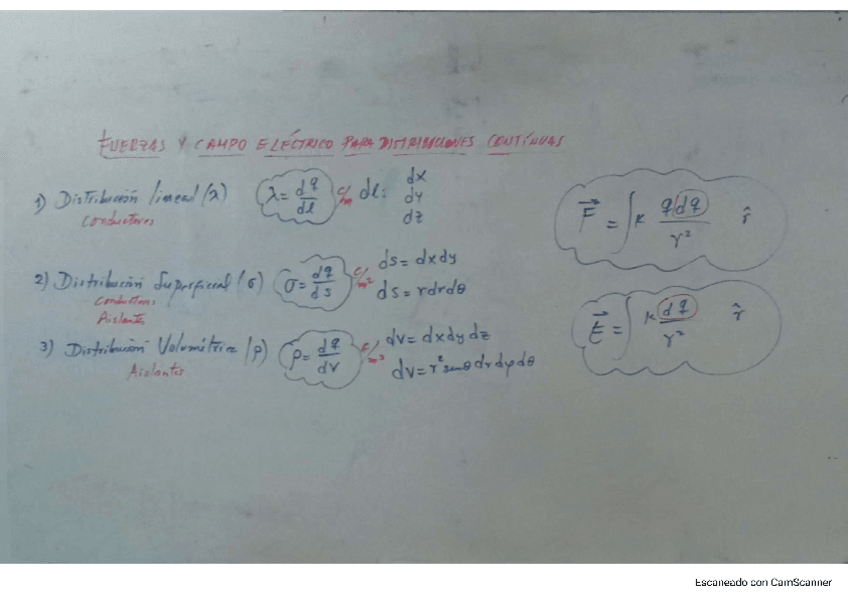 FUERZAS Y CAMPO ELÉCTRICO PARA DISTRIBUCIONES CONTÍNUAS
1) Distribución lineal (λ) λ = dq/dl C/m dl: dx
dy
dz
Conductores
F⃗ = ∫ k q(dq)/r² r̂
2) Distribución Superficial (σ) σ = dq/ds C/m² ds = dxdy
ds = rdrdθ
Conductores
Aislantes
E⃗ = ∫ k dq/r² r̂
3) Distribución Volumétrica (ρ) ρ = dq/dv C/m³ dv = dxdydz
dv = r² senθ dr dφ dθ
Aislantes
Escaneado con CamScanner